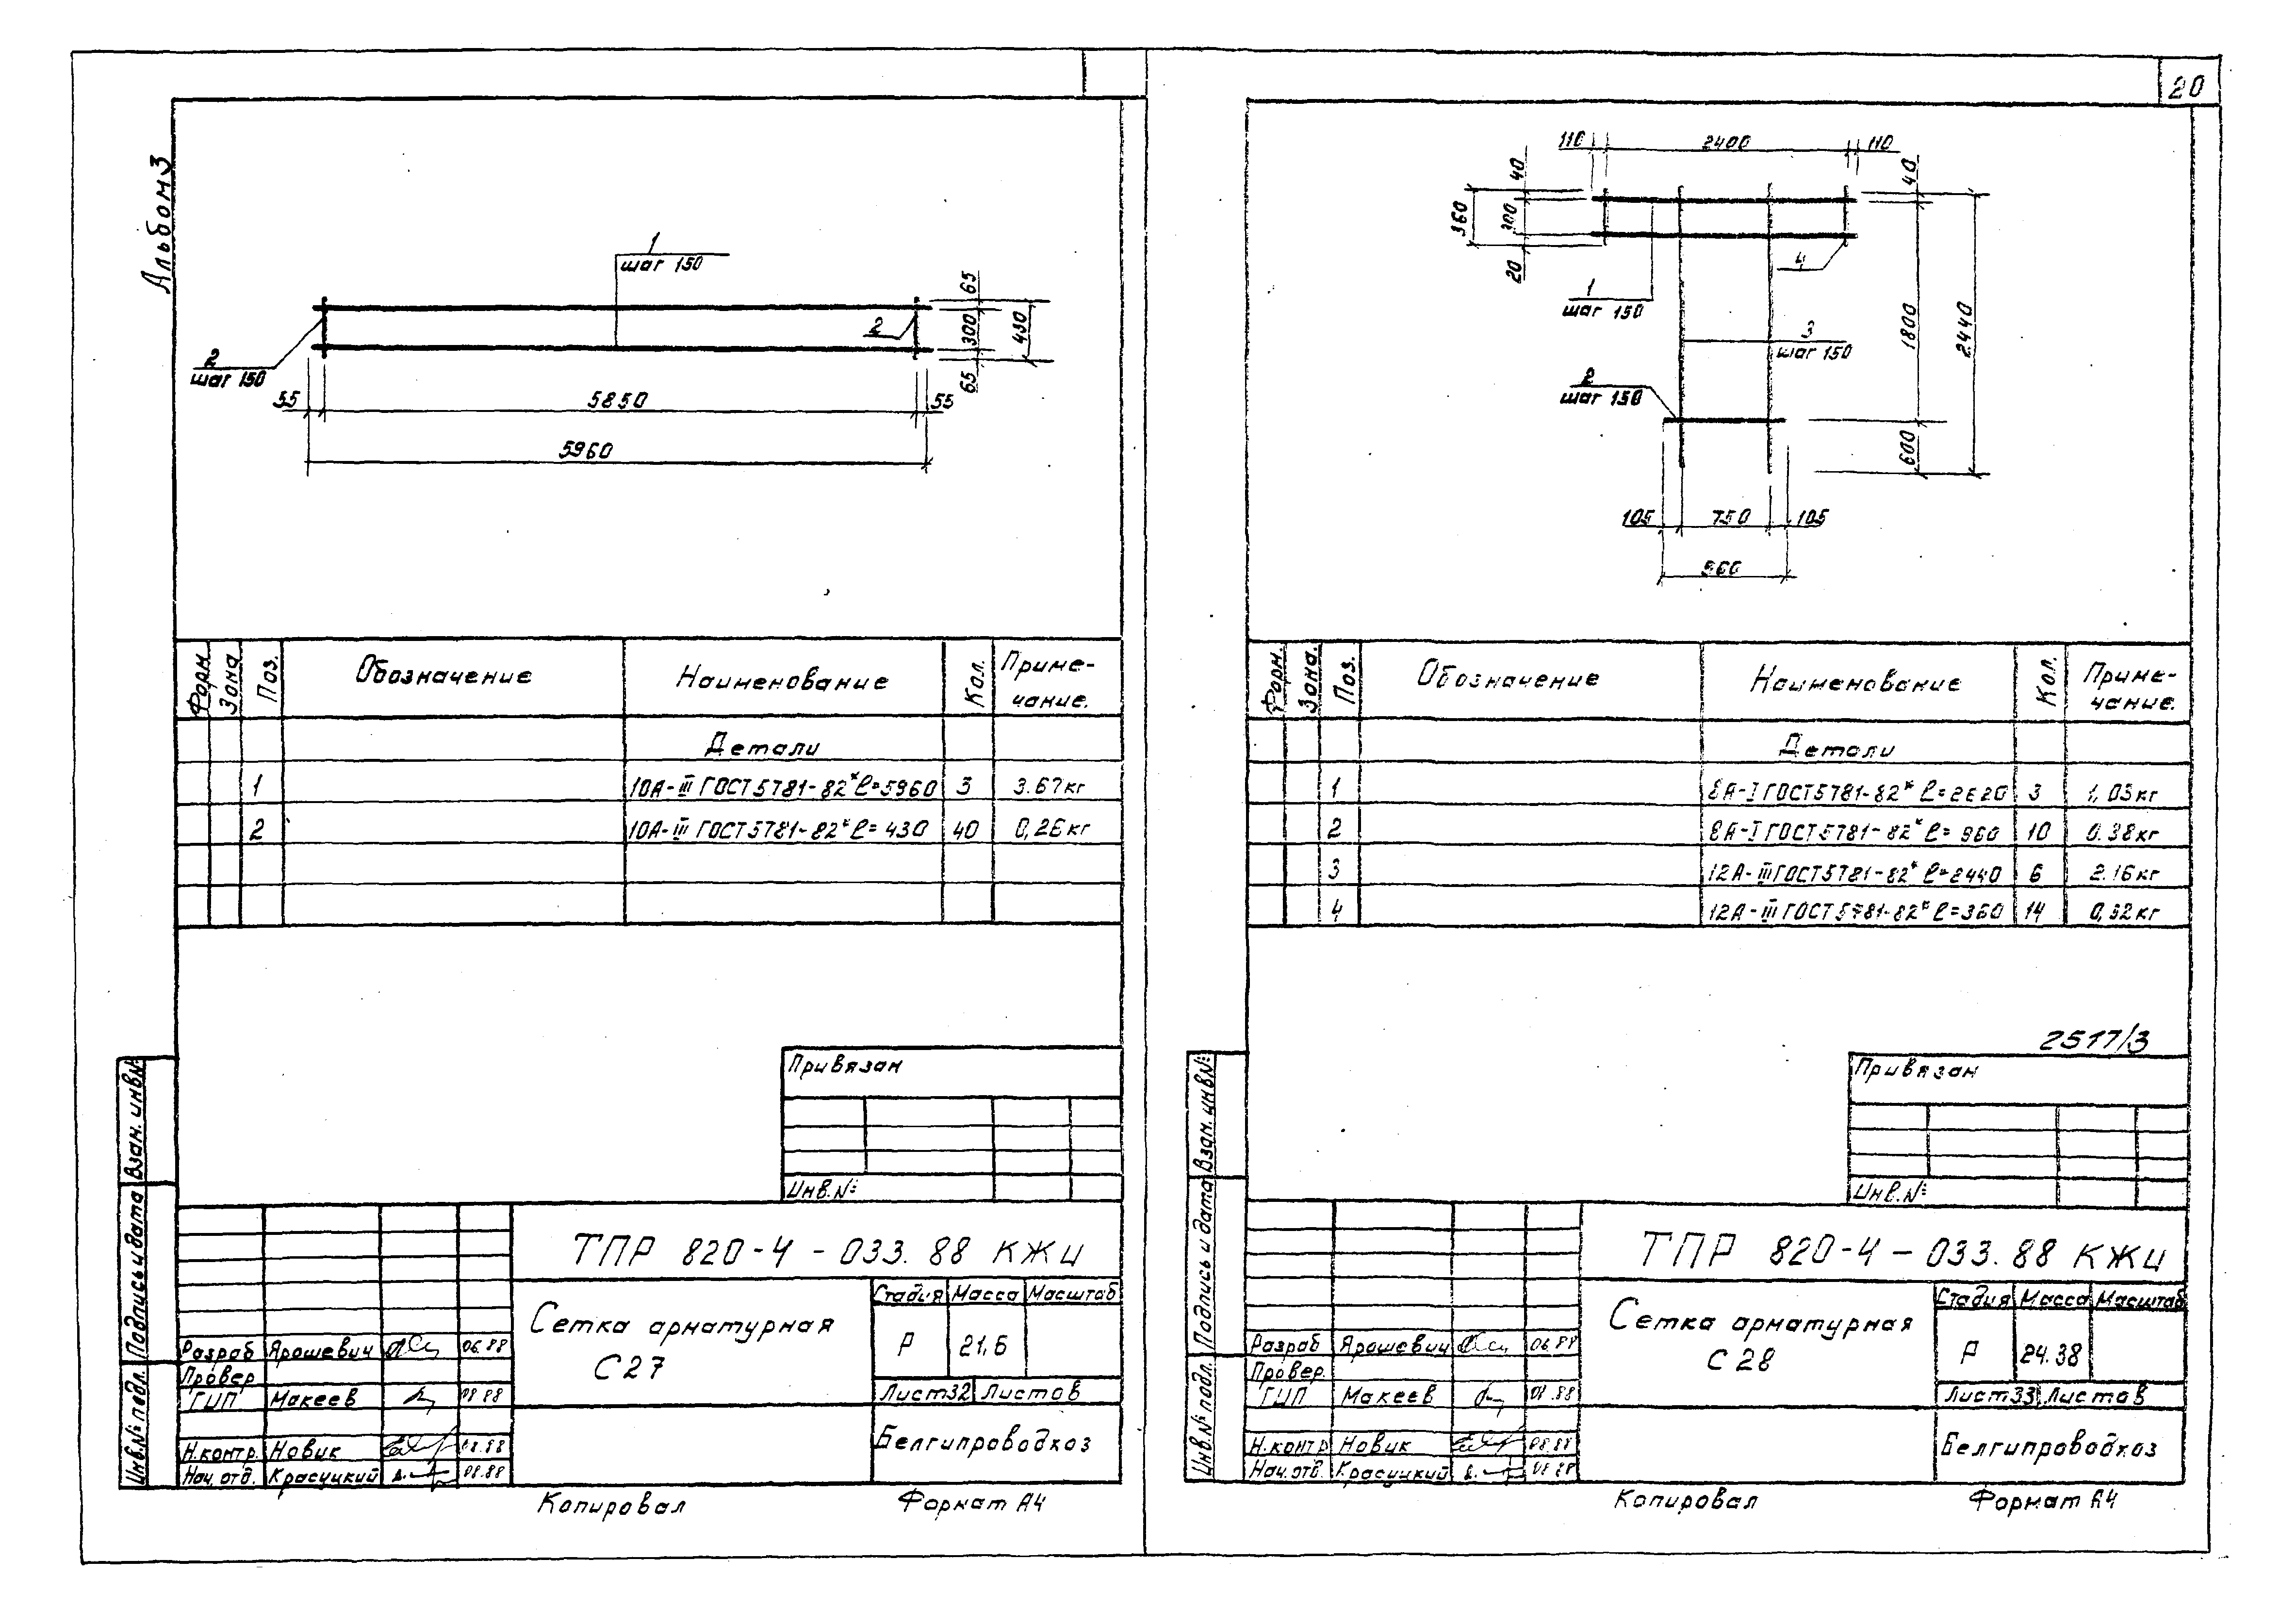 Альбом 3
1
шаг 150
2
шаг 150
2
65
300
65
430
55
5850
55
5960
Форм.
Зона
Поз.
Обозначение
Наименование
Кол.
Приме-
чание.
Детали
1 10А-III ГОСТ 5781-82* ℓ=5960 3 3.67кг
2 10А-III ГОСТ 5781-82* ℓ=430 40 0,26кг
Привязан
Инв.№
Взам. инв№
Подпись и дата
Инв.№ подл.
ТПР 820-4-033.88 КЖи
Сетка арматурная
С27
Стадия Масса Масштаб
Р 21,6
Лист 32 Листов
Белгипроводхоз
Разраб Ярошевич 06.88
Провер
ГИП Макеев 08.88
Н.контр. Новик 08.88
Нач.отд. Красуцкий 08.88
Копировал
Формат А4
20
110
2400
110
40
300
20
360
40
1800
600
2440
4
1
шаг 150
3
шаг 150
2
шаг 150
105
750
105
960
Форм.
Зона.
Поз.
Обозначение
Наименование
Кол.
Приме-
чание.
Детали
1 8А-I ГОСТ 5781-82* ℓ=2620 3 1,03кг
2 8А-I ГОСТ 5781-82* ℓ=960 10 0.38кг
3 12А-III ГОСТ 5781-82* ℓ=2440 6 2.16кг
4 12А-III ГОСТ 5781-82* ℓ=360 14 0,32кг
2517/3
Привязан
Инв.№
Взам. инв№
Подпись и дата
Инв.№ подл.
ТПР 820-4-033.88 КЖи
Сетка арматурная
С28
Стадия Масса Масштаб
Р 24.38
Лист 33 Листов
Белгипроводхоз
Разраб Ярошевич 06.88
Провер.
ГИП Макеев 08.88
Н.контр Новик 08.88
Нач.отд. Красуцкий 08.88
Копировал
Формат А4